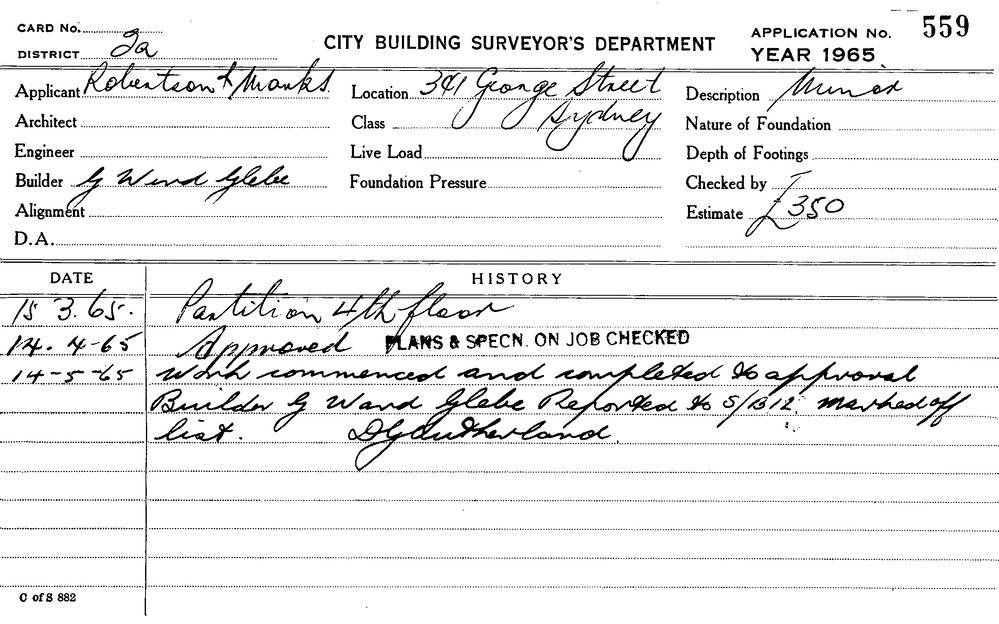 CARD No.
DISTRICT 2a
CITY BUILDING SURVEYOR'S DEPARTMENT
APPLICATION No. 559
YEAR 1965
Applicant Robertson & Marks.
Location 341 George Street
Sydney
Description Minor
Architect
Class
Nature of Foundation
Engineer
Live Load
Depth of Footings
Builder G Ward Glebe
Foundation Pressure
Checked by
Alignment
Estimate £350
D.A.
DATE HISTORY
15 3.65. Partition 4th floor
14. 4-65 Approved PLANS & SPECN. ON JOB CHECKED
14-5-65 Work commenced and completed to approval
Builder G Ward Glebe Reported to S/B12. marked off
list. DG Sutherland.
C of S 882